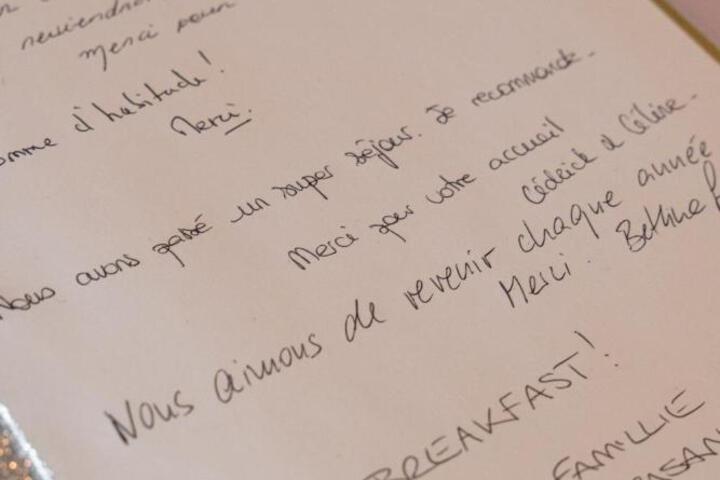 Merci pour
comme d'habitude!
Merci.
Nous avons passé un super séjour. Je recommande.
Merci pour votre accueil
Cédrick & Céline.
Nous aimons de revenir chaque année
Merci. Bettina
BREAKFAST!
FAMILLIE